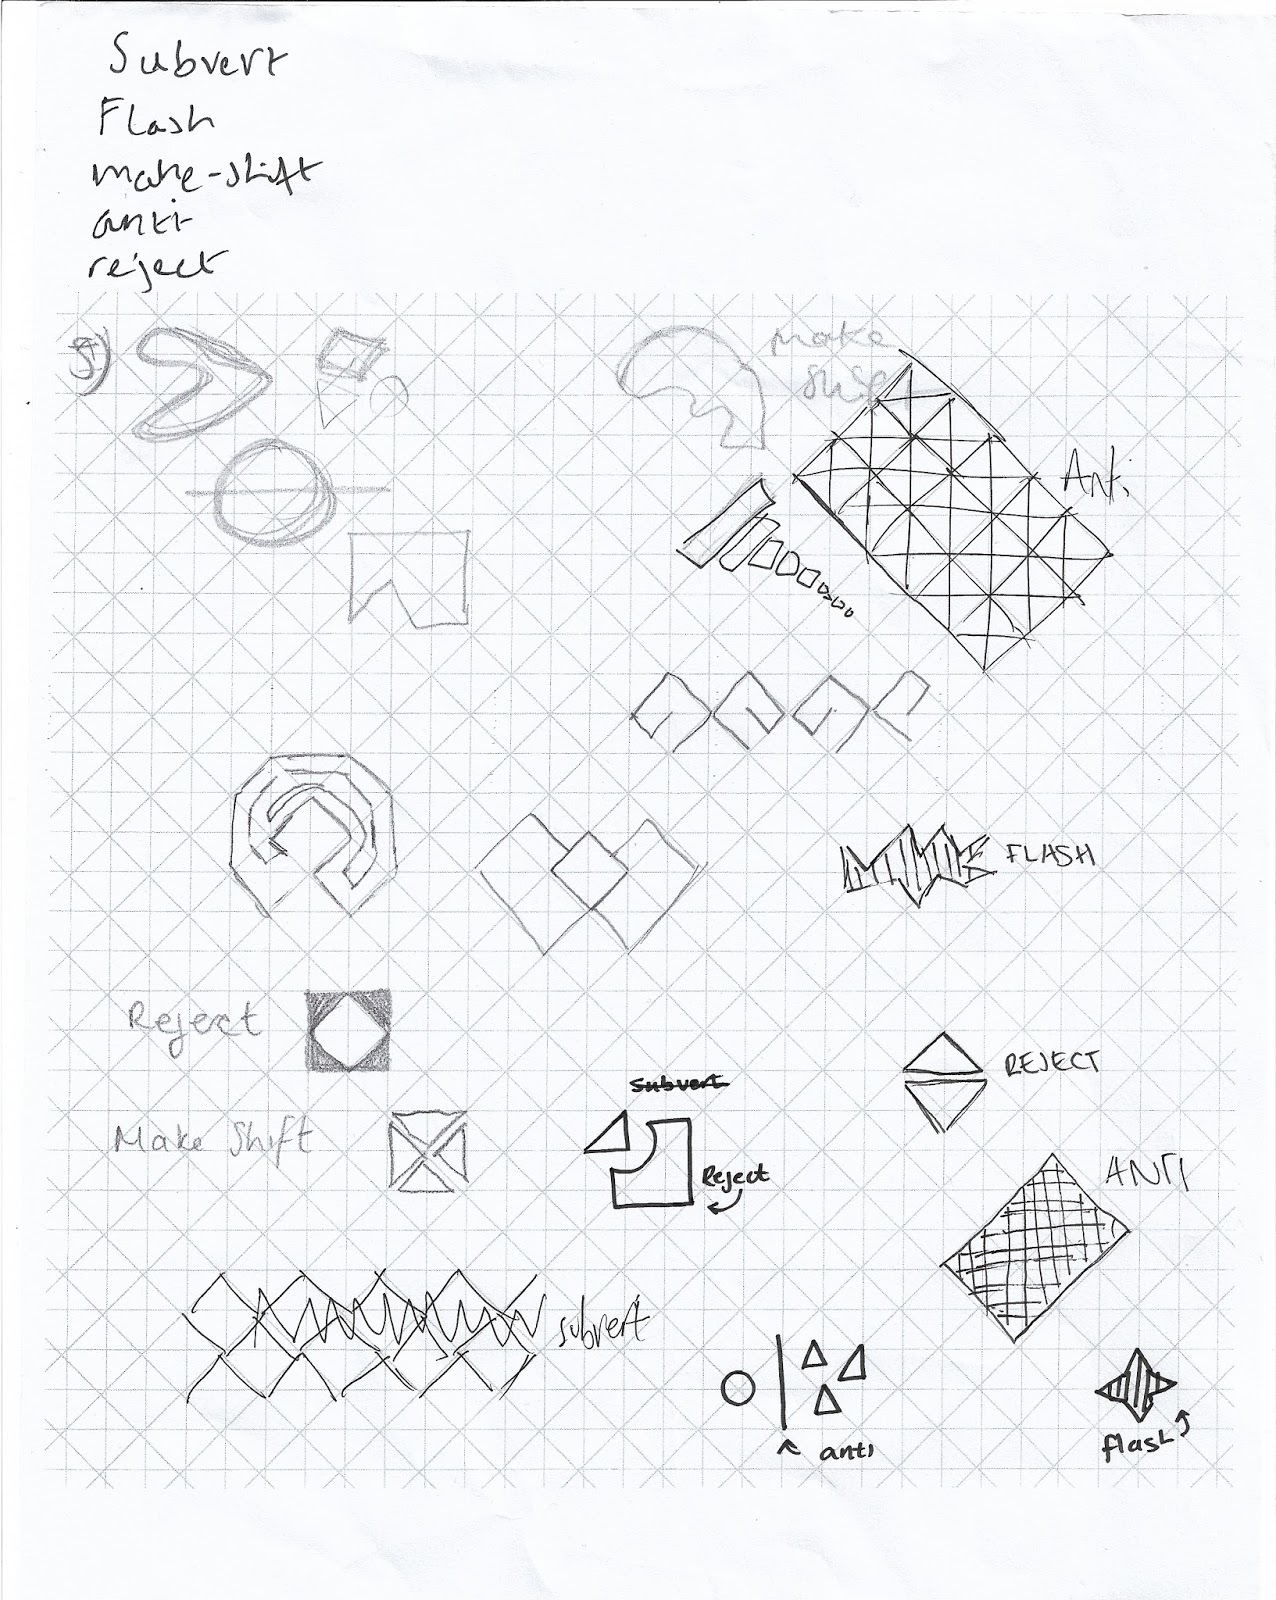 Subvert
Flash
make-shift
anti
reject
5)
Make
Shift
Anti
FLASH
Reject
REJECT
Subvert
Make Shift
Reject
ANTI
subvert
anti
flash